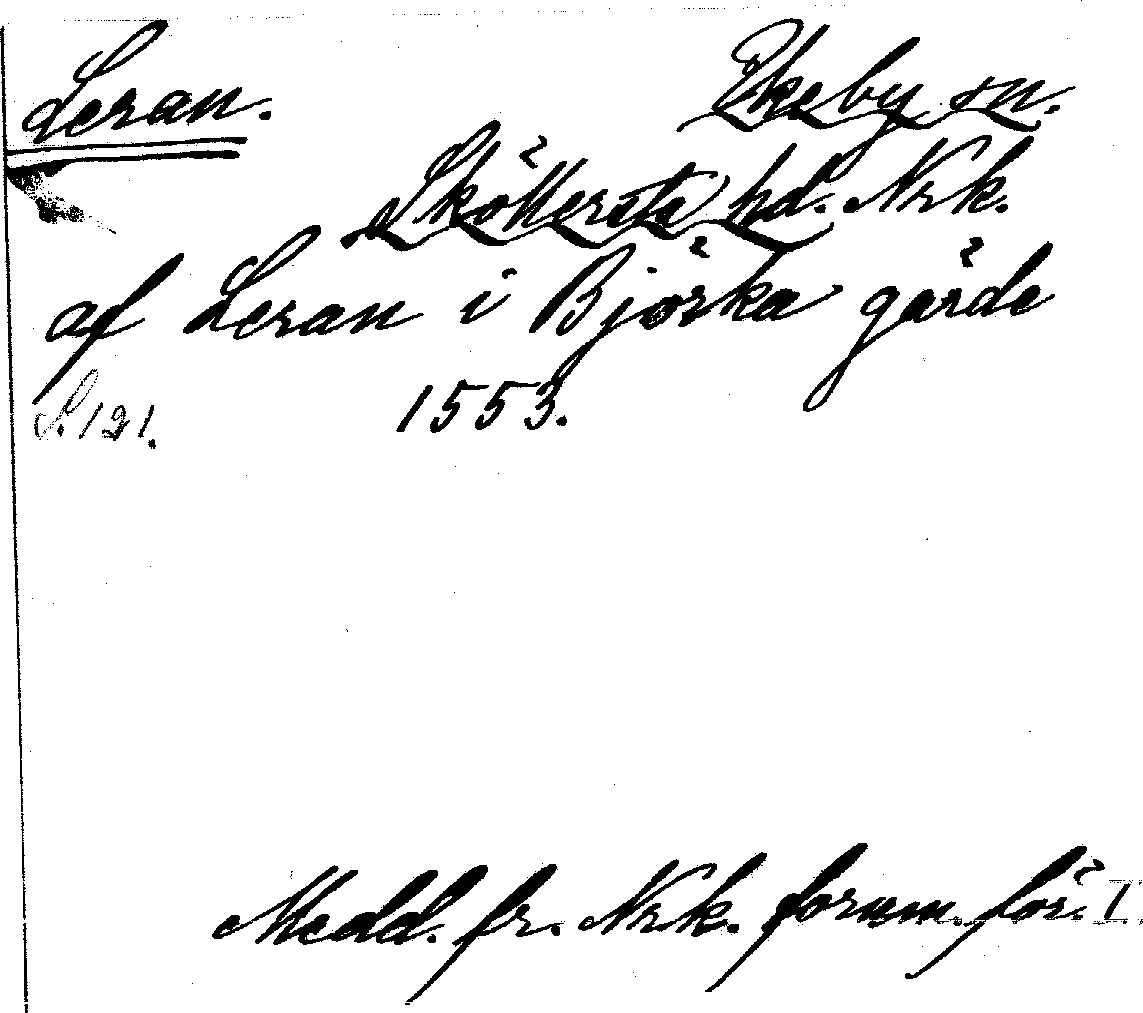 Leran.
Ekeby sn.
Sköllersta hd. Nrk.
af Leran i Björka gärde
S. 121.
1553.
Medd. fr. Nrk. fornm.för. I.